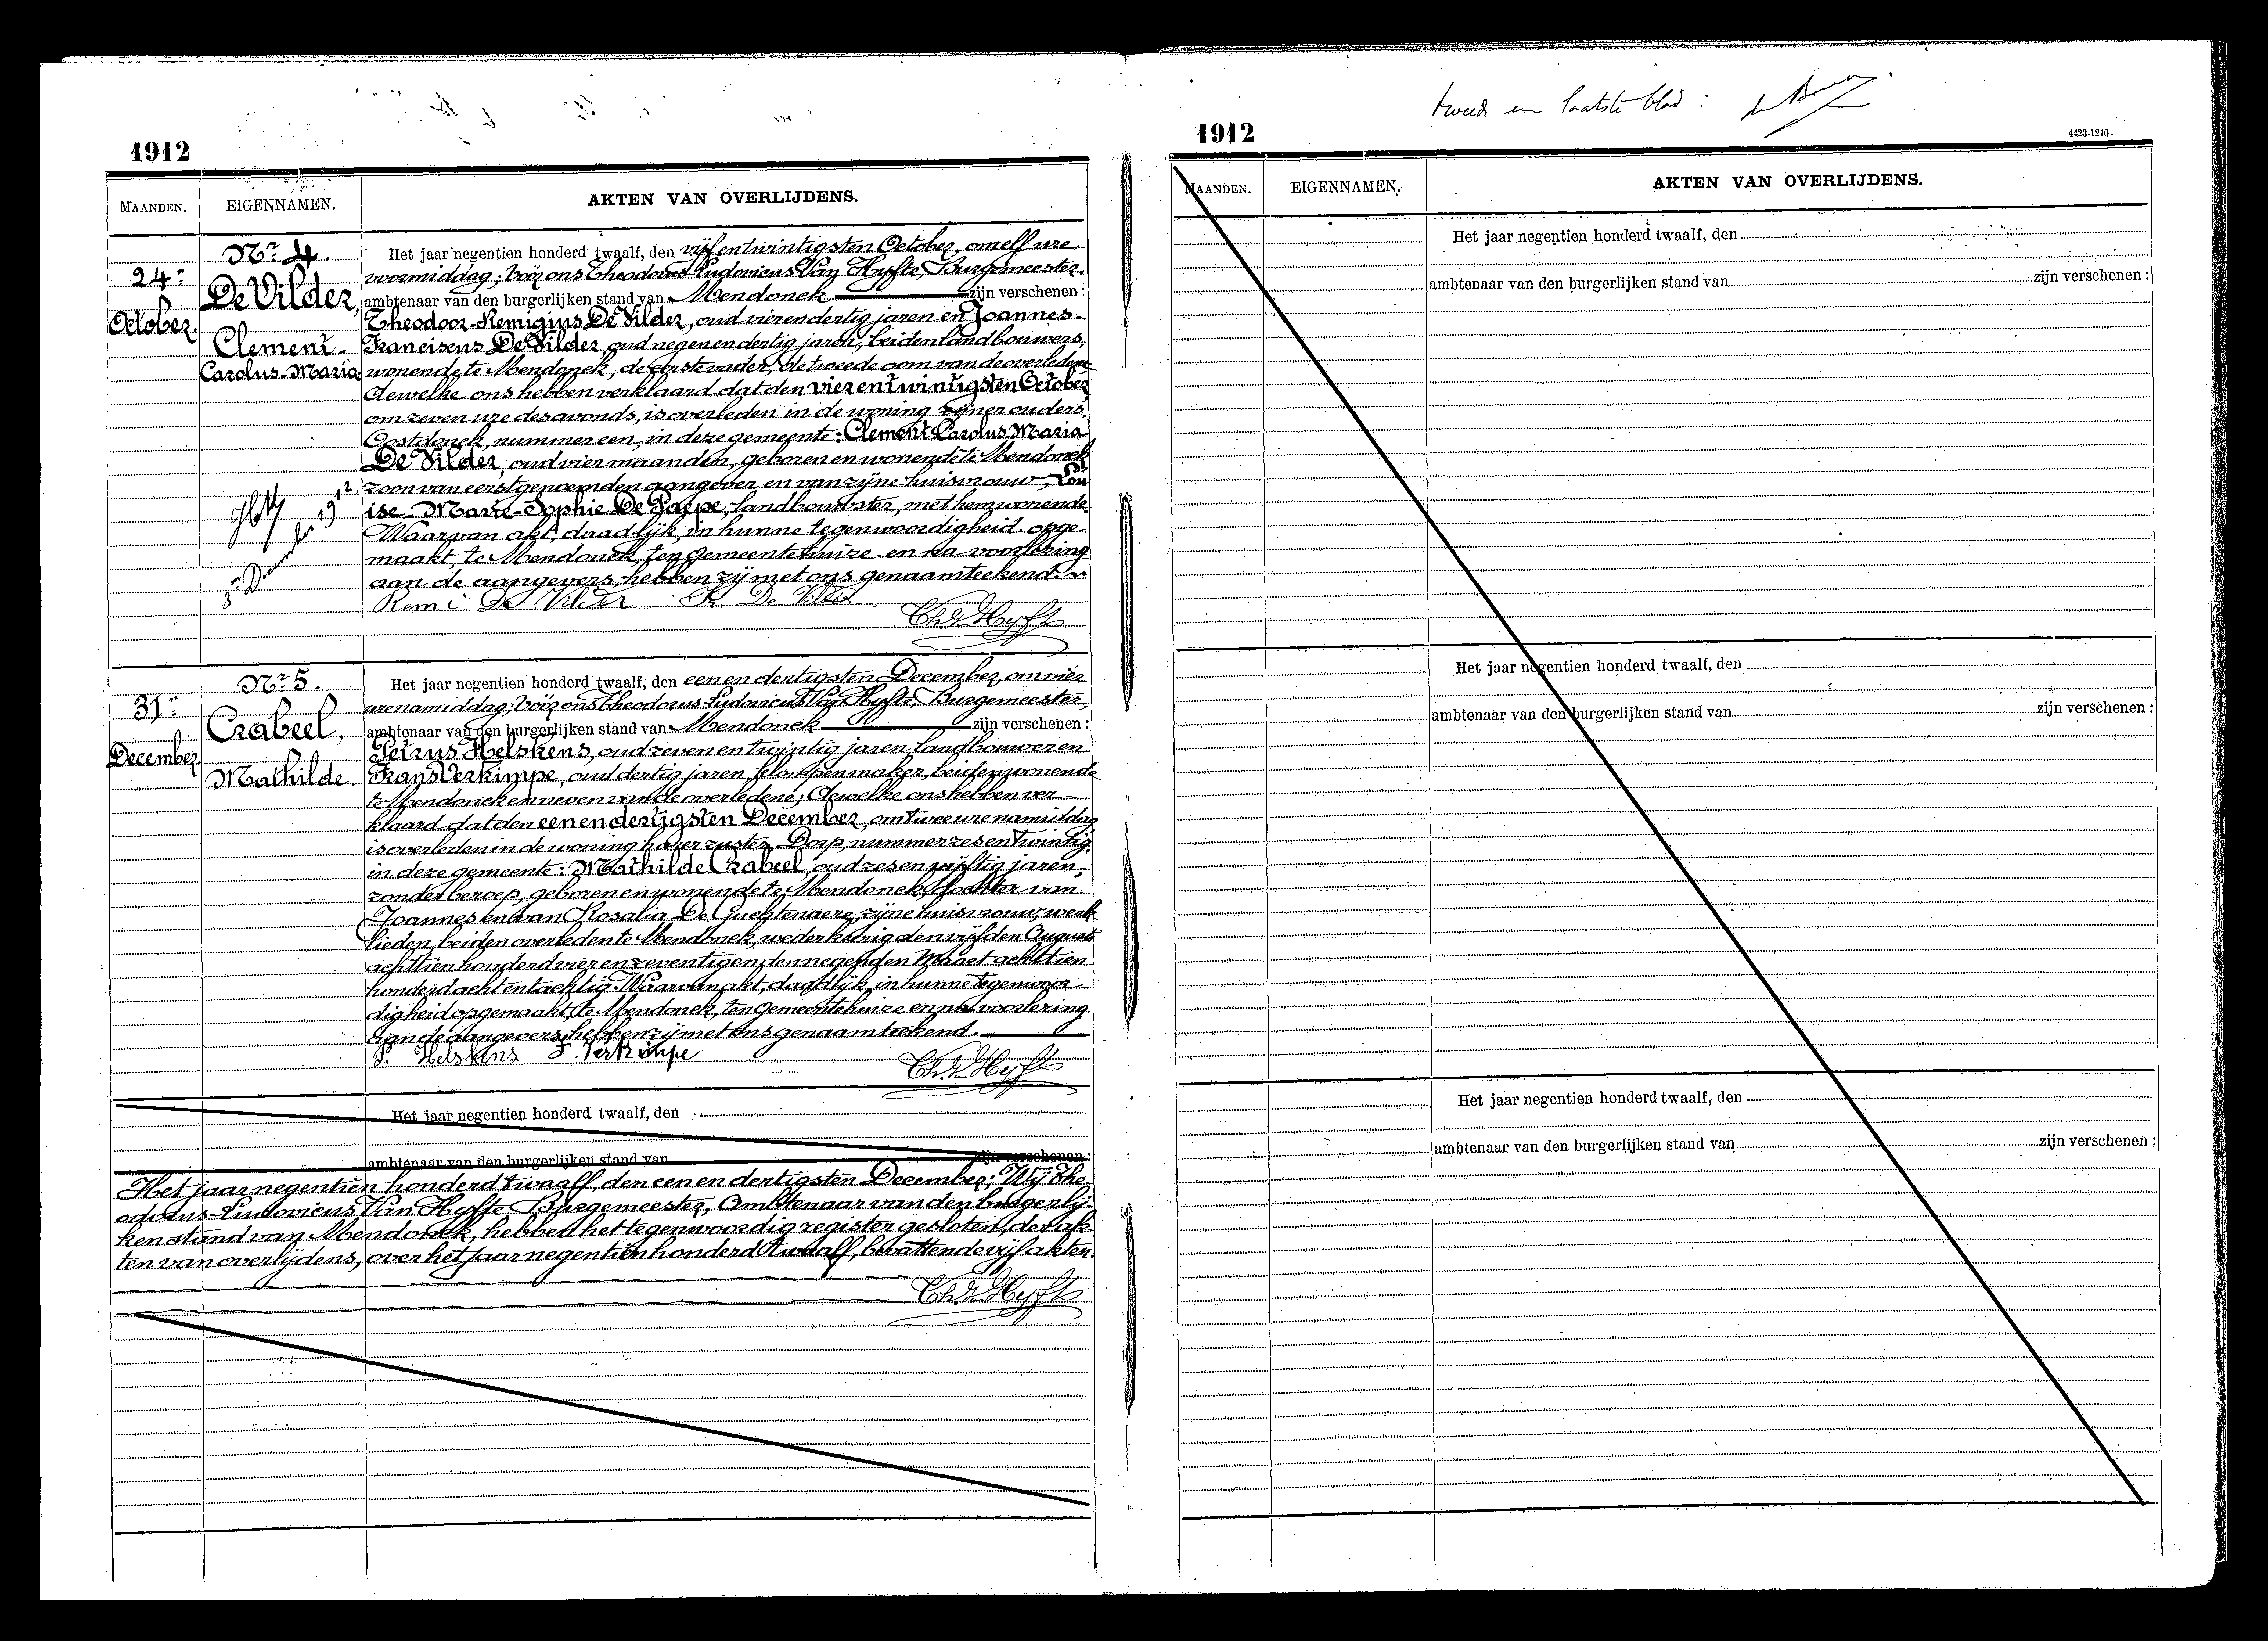 1912
MAANDEN.
EIGENNAMEN.
AKTEN VAN OVERLIJDENS.
24n
October.
Nr 4.
De Vilder,
Clement-
Carolus-Maria.
Het jaar negentien honderd twaalf, den vijfentwintigsten October, om elf ure
voormiddag; vóór ons Theodorus-Ludovicus Van Hyfte, Burgemeester,
ambtenaar van den burgerlijken stand van Mendonck zijn verschenen :
Theodoor-Remigius De Vilder, oud vierendertig jaren en Joannes-
Franciscus De Vilder, oud negenendertig jaren, beiden landbouwers,
wonende te Mendonck, de eerste vader, de tweede oom van de overledene
dewelke ons hebben verklaard dat den vierentwintigsten October,
om zeven ure des avonds, is overleden in de woning zijner ouders,
Oostdonck, nummer een, in deze gemeente: Clement Carolus Maria
De Vilder, oud vier maanden, geboren en wonende te Mendonck
zoon van eerstgenoemden aangever en van zijne huisvrouw, Lou
ise-Marie-Sophie De Paepe, landbouwster, met hem wonende.
Waarvan akt, daadlijk, in hunne tegenwoordigheid opge-
maakt, te Mendonck, ten gemeentehuize en na voorlezing
aan de aangevers, hebben zij met ons genaamteekend.
Remi De Vilder De Vilder
Th. V. Hyfte
31n
December.
Nr 5.
Crabeel,
Mathilde.
Het jaar negentien honderd twaalf, den eenendertigsten December, om vier
ure namiddag; vóór ons Theodorus-Ludovicus Van Hyfte, Burgemeester,
ambtenaar van den burgerlijken stand van Mendonck zijn verschenen :
Petrus Helskens, oud zevenentwintig jaren, landbouwer en
Frans Verkimpe, oud dertig jaren, klompenmaker, beiden wonende
te Mendonck en neven van de overledene; dewelke ons hebben ver
klaard dat den eenendertigsten December, om twee ure namiddag
is overleden in de woning harer zuster, Dorp, nummer zesentwintig,
in deze gemeente: Mathilde Crabeel, oud zesenvijftig jaren,
zonder beroep, geboren en wonende te Mendonck, dochter van
Joannes en van Rosalia De Guchtenaere, zijne huisvrouw, werk-
lieden, beiden overleden te Mendonck, wederkeerig den vijfden Augusti
achttien honderd vierenzeventig en den negenden Maart achttien
honderd achtentachtig. Waarvan akt, daadlijk, in hunne tegenwoor
digheid opgemaakt, te Mendonck, ten gemeentehuize en na voorlezing
aan de aangevers, hebben zij met ons genaamteekend.
P. Helskens F. Verkimpe
Th. V. Hyfte
Het jaar negentien honderd twaalf, den
ambtenaar van den burgerlijken stand van zijn verschenen :
Het jaar negentien honderd twaalf, den eenendertigsten December; Wij The-
odorus-Ludovicus Van Hyfte Burgemeester, Ambtenaar van den burgerlij-
ken stand van Mendonck, hebben het tegenwoordig register gesloten, der ak-
ten van overlijdens, over het jaar negentienhonderd twaalf, bevattende vijf akten.
Th. V. Hyfte
tweede en laatste blad :
1912
4423-1240
MAANDEN.
EIGENNAMEN.
AKTEN VAN OVERLIJDENS.
Het jaar negentien honderd twaalf, den
ambtenaar van den burgerlijken stand van zijn verschenen :
Het jaar negentien honderd twaalf, den
ambtenaar van den burgerlijken stand van zijn verschenen :
Het jaar negentien honderd twaalf, den
ambtenaar van den burgerlijken stand van zijn verschenen :